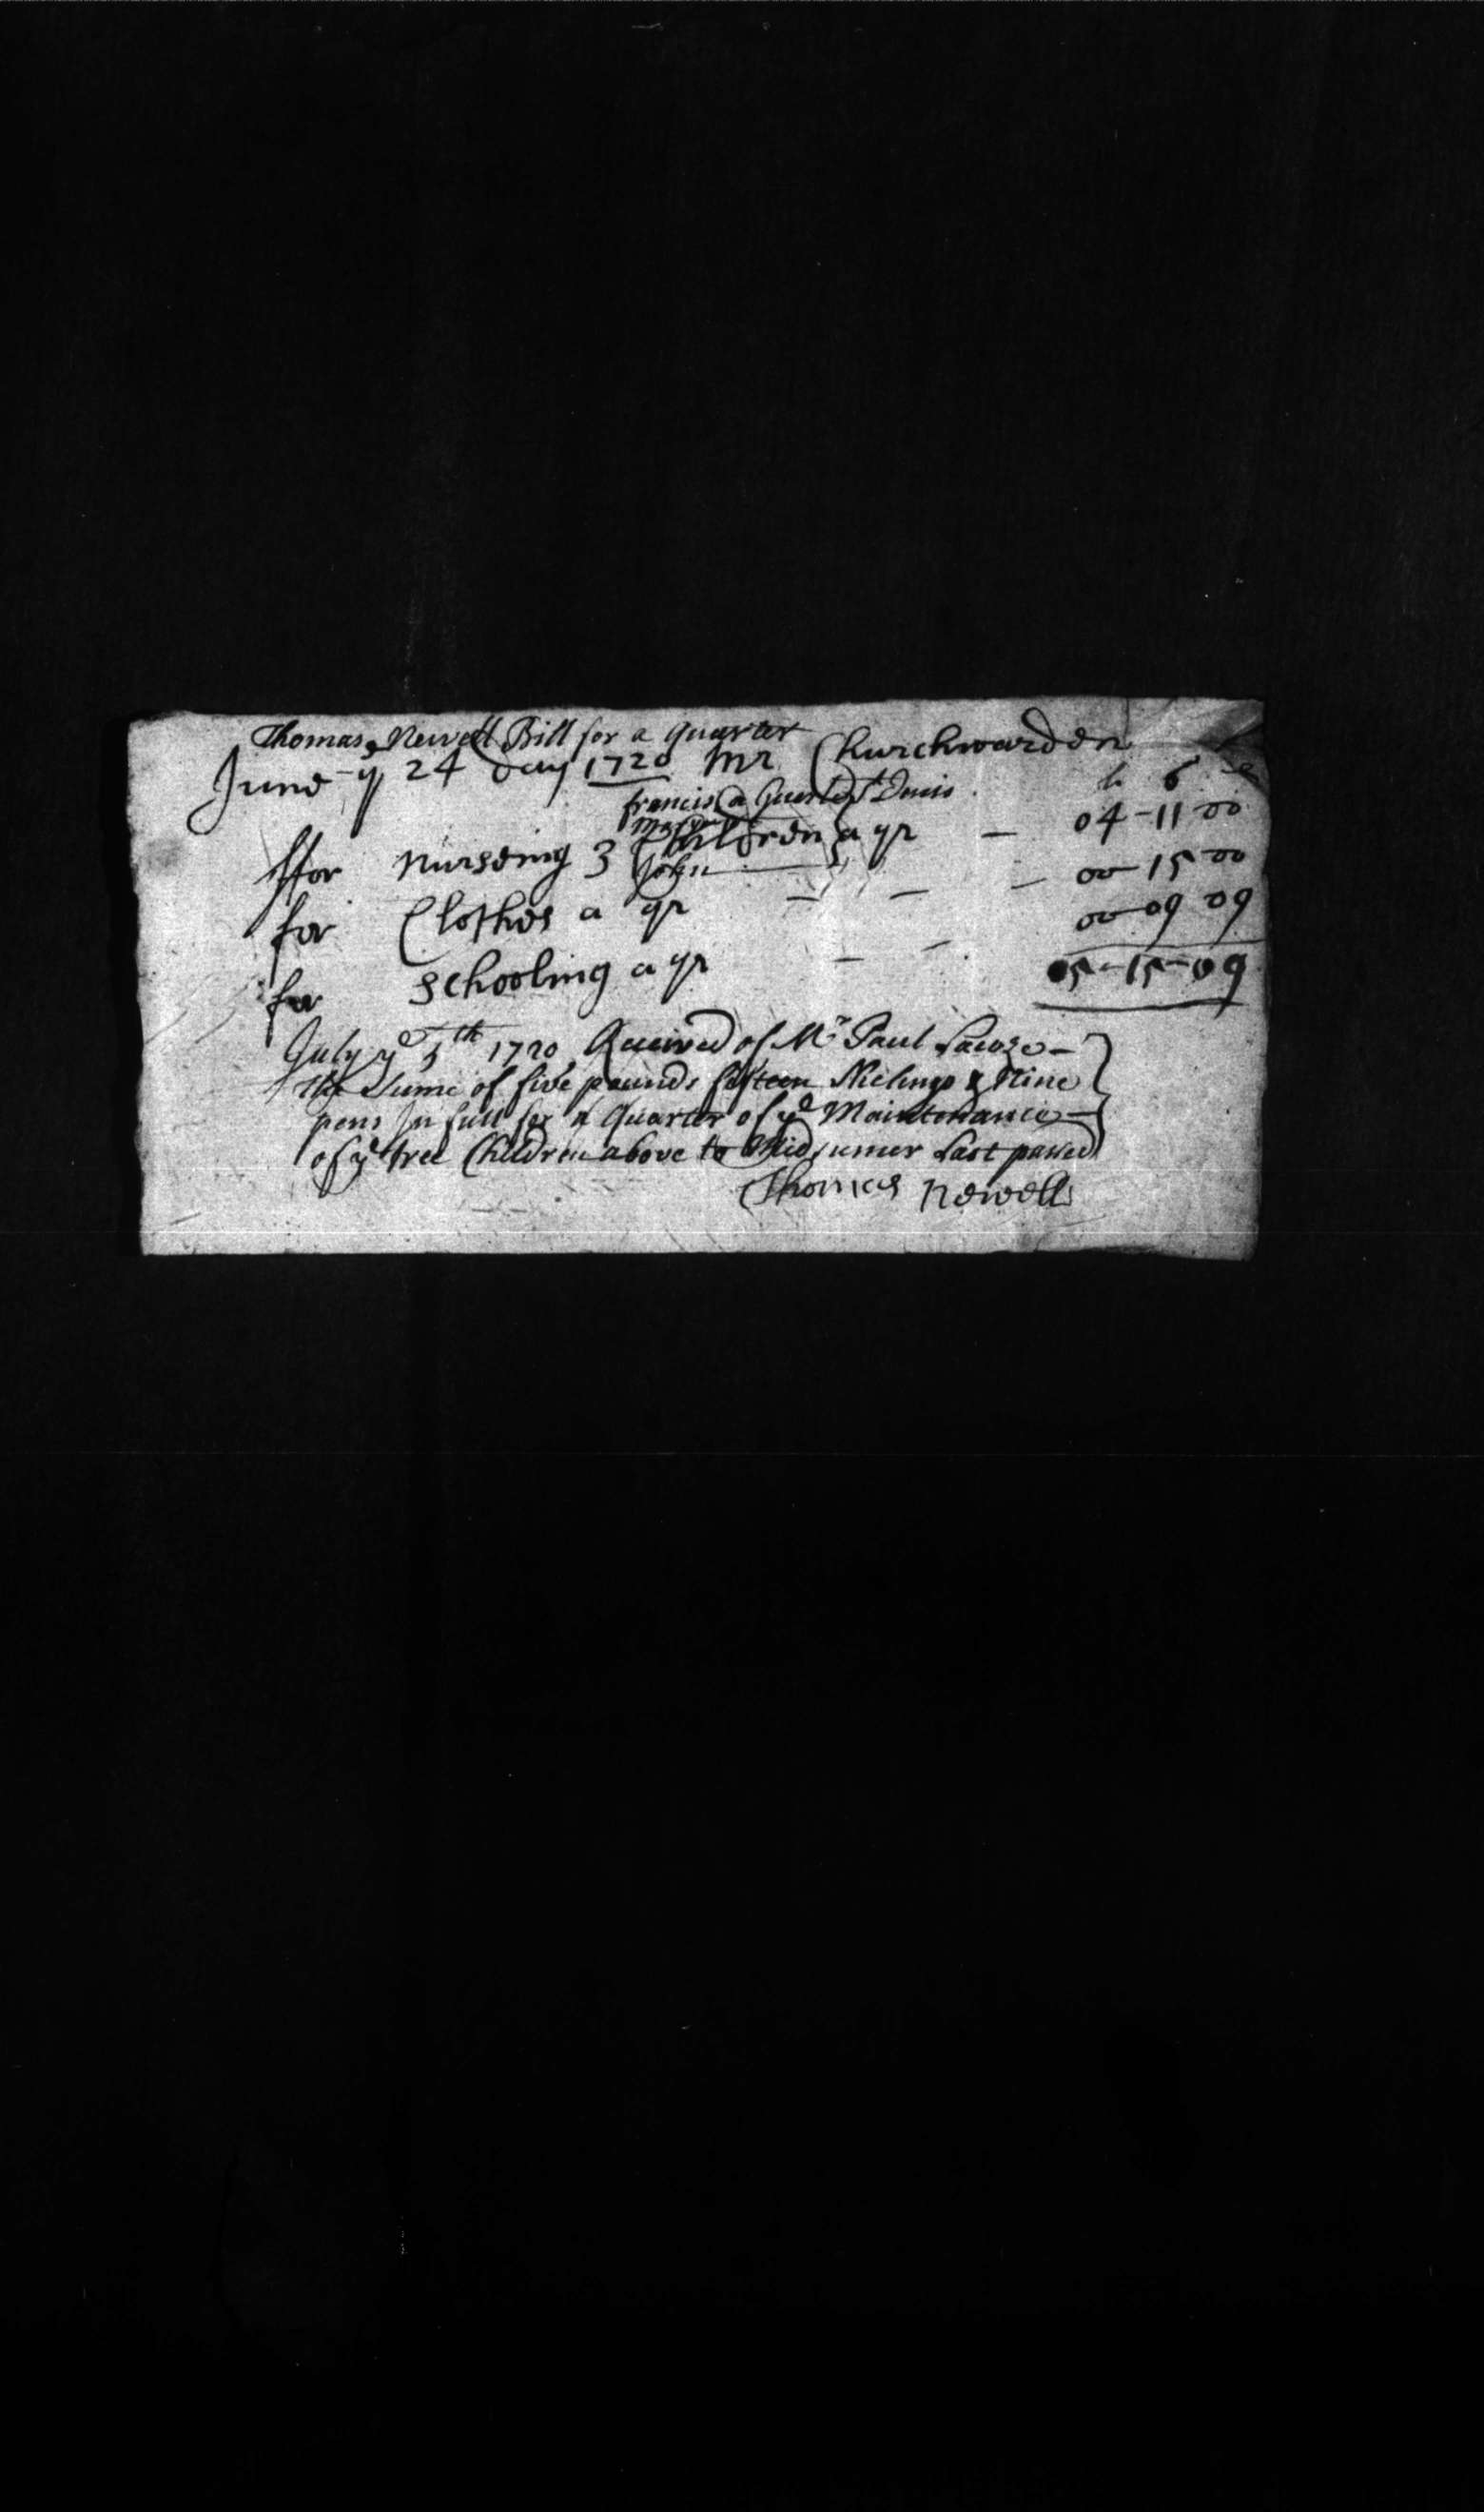 Thomas Newell Bill for a Quarter
June ye 24 day 1720 Mr Churchwarden
francis a Quarter
Mary
ffor nurseing 3 Children a qr — 04-11 00
John
for Clothes a qr — — — 00 15 00
for schooling a qr — — 00 09 09
05-15-09
July ye 5th 1720 Received of Mr Paul
the Sume of five pounds fifteen Shelings & Nine
pens In full for a Quarter of ye Maintenance
of ye tree Children above to Midsumer Last passed
Thomas Newell